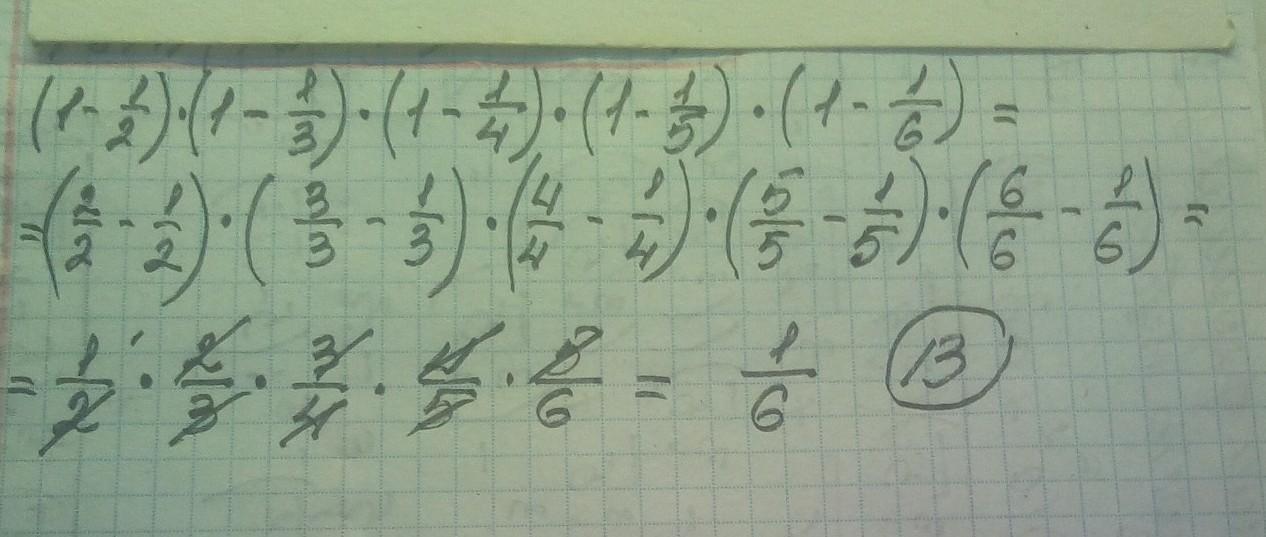 (1 - 1/2) · (1 - 1/3) · (1 - 1/4) · (1 - 1/5) · (1 - 1/6) =
= (2/2 - 1/2) · (3/3 - 1/3) · (4/4 - 1/4) · (5/5 - 1/5) · (6/6 - 1/6) =
= 1/2 · 2/3 · 3/4 · 4/5 · 5/6 = 1/6 13